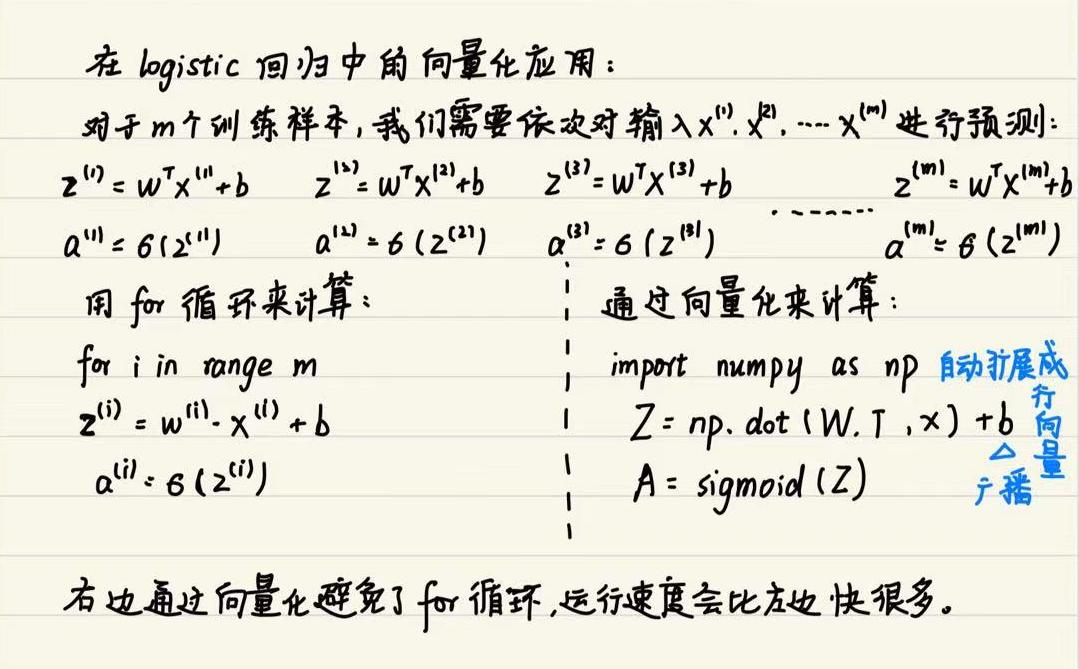 在 logistic 回归中的向量化应用：
对于m个训练样本，我们需要依次对输入x⁽¹⁾, x⁽²⁾, ···· x⁽ᵐ⁾进行预测：
z⁽¹⁾ = wᵀx⁽¹⁾+b z⁽²⁾ = wᵀx⁽²⁾+b z⁽³⁾ = wᵀx⁽³⁾+b ······ z⁽ᵐ⁾ = wᵀx⁽ᵐ⁾+b
a⁽¹⁾ = 6(z⁽¹⁾) a⁽²⁾ = 6(z⁽²⁾) a⁽³⁾ = 6(z⁽³⁾) a⁽ᵐ⁾ = 6(z⁽ᵐ⁾)
用 for 循环来计算：
for i in range m
z⁽ⁱ⁾ = w⁽ⁱ⁾·x⁽ⁱ⁾+b
a⁽ⁱ⁾ = 6(z⁽ⁱ⁾)
通过向量化来计算：
import numpy as np
Z = np.dot(W.T,x)+b
A = sigmoid(Z)
自动扩展成行向量
△
广播
右边通过向量化避免了for循环，运行速度会比左边快很多。